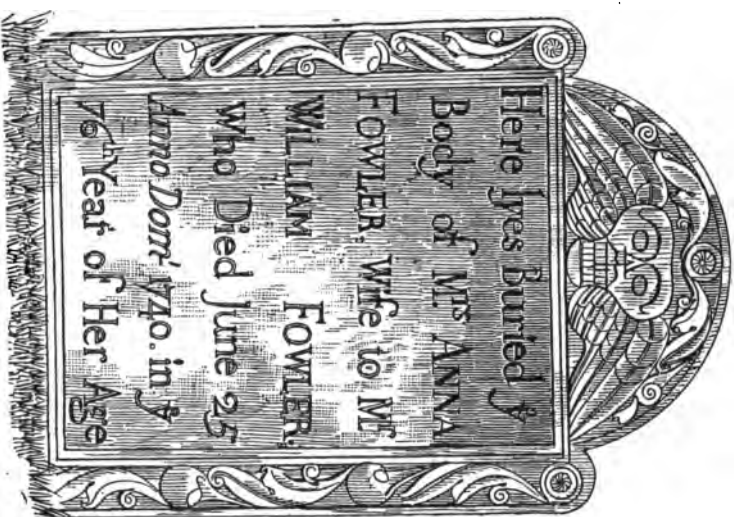 Here lyes Buried yᵉ
Body of Mʳˢ ANNA
FOWLER, Wife to Mʳ
WILLIAM FOWLER,
Who Died June 25
Anno Dom' 1740. in yᵉ
70ᵗʰ Year of Her Age